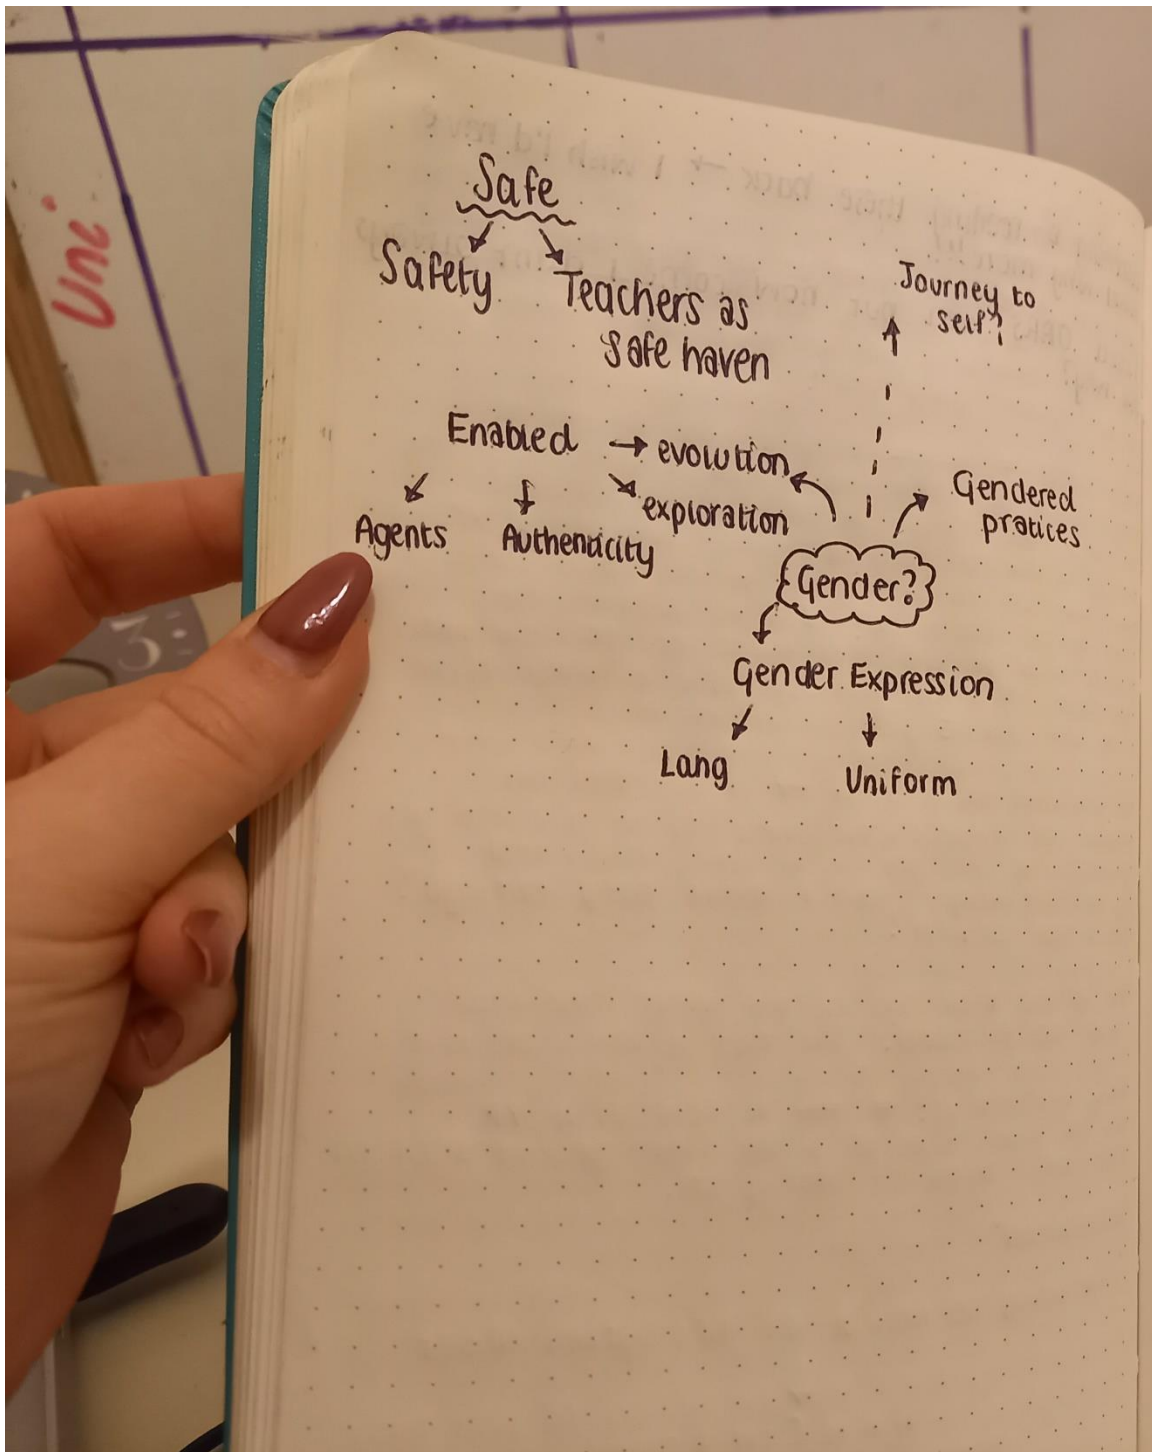 Safe
Safety
Teachers as
safe haven
Journey to
self?
Enabled
evolution
exploration
Agents
Authenticity
Gendered
pratices
Gender?
Gender Expression
Lang
Uniform
Uni
3